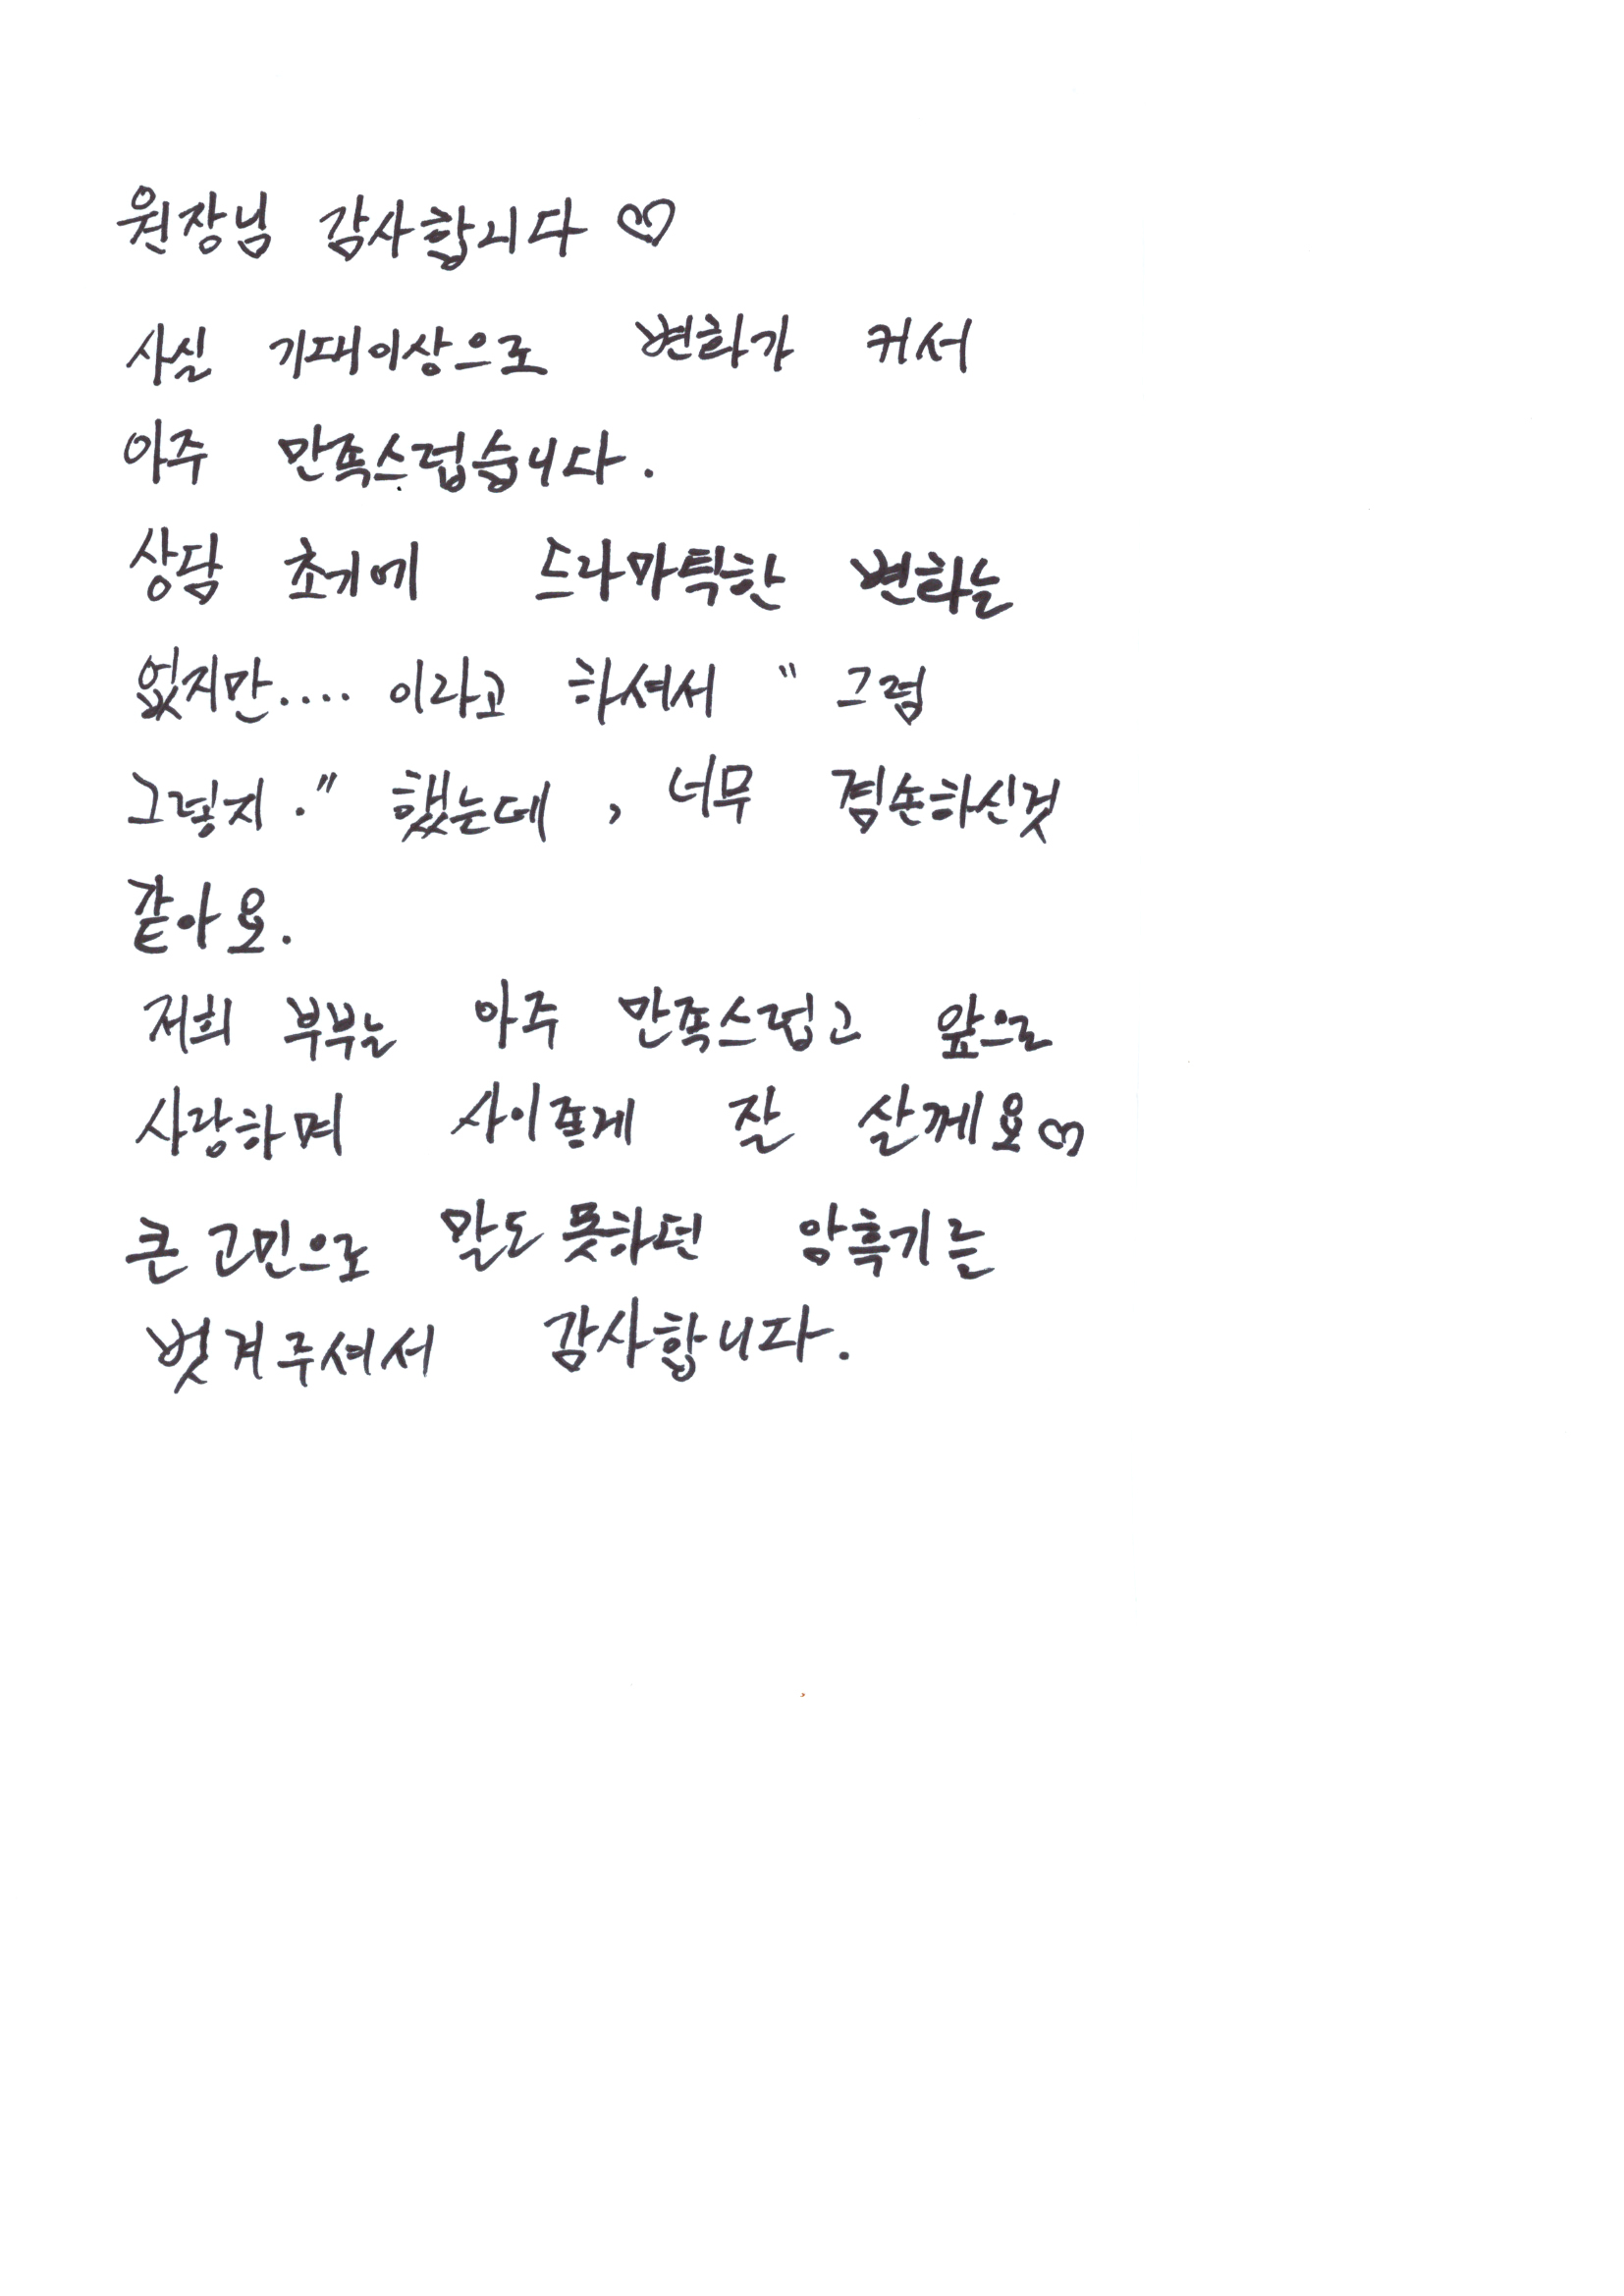 원장님 감사합니다 ♡
사실 기대이상으로 변화가 커서
아주 만족스럽습니다.
상담 초기에 드라마틱한 변화는
없지만.... 이라고 하셔서 " 그럼
그렇지." 했는데, 너무 겸손하신것
같아요.
저희 부부는 아주 만족스럽고 앞으로
사랑하며 사이좋게 잘 살께요♡
큰 고민으로 말도 못하던 암흑기를
벗겨주셔서 감사합니다.